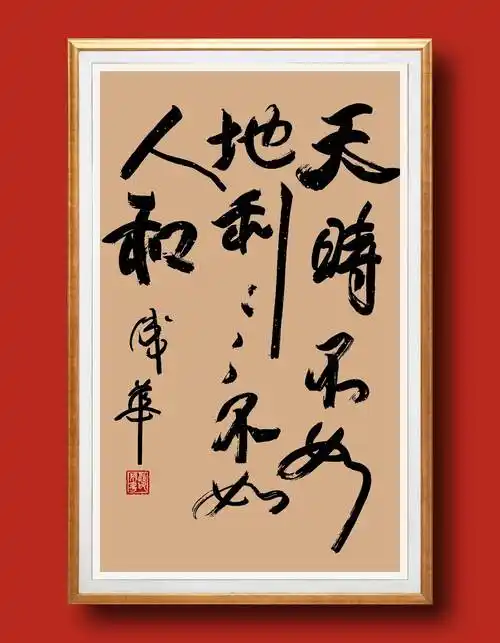 天時不如
地利〻〻不如
人和
華